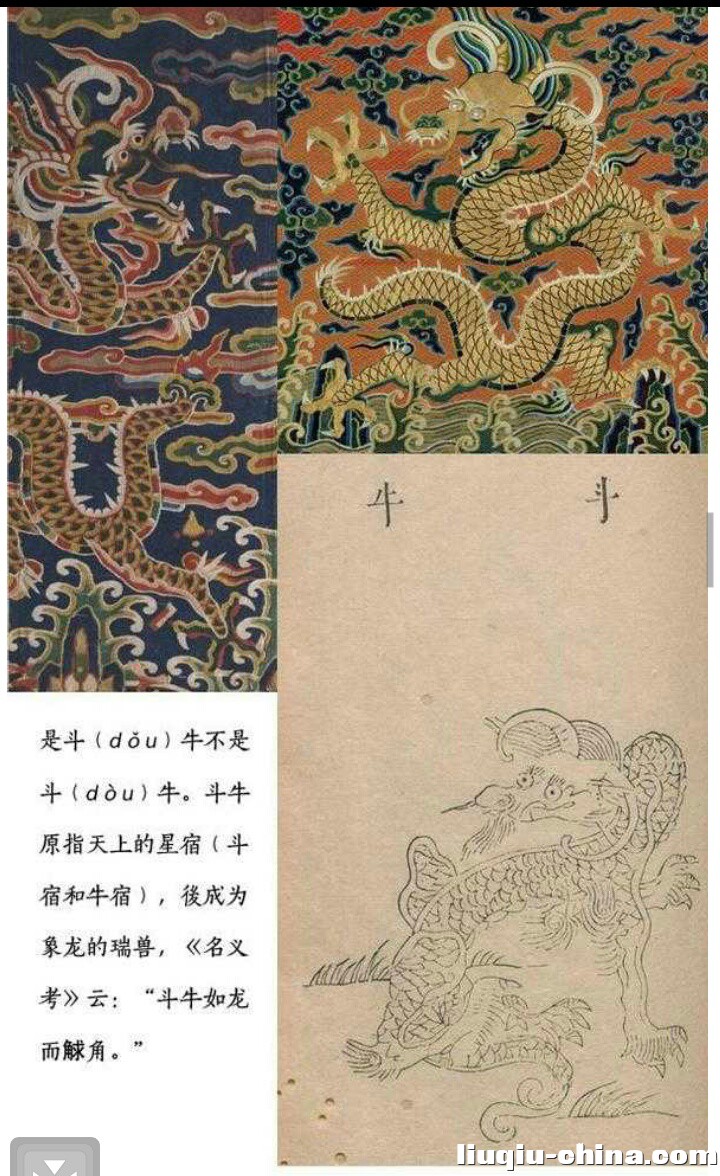 牛 斗
是斗（dǒu）牛不是
斗（dòu）牛。斗牛
原指天上的星宿（斗
宿和牛宿），後成为
象龙的瑞兽，《名义
考》云：“斗牛如龙
而觩角。”
liuqiu-china.com